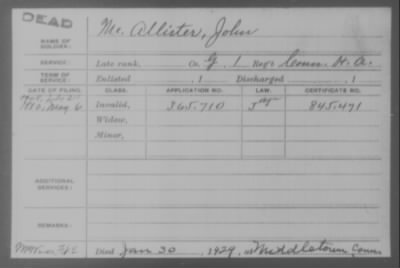 DEAD
NAME OF SOLDIER: Mc Allister, John
SERVICE: Late rank, Co. G, 1 Reg't Conn. H. A.
TERM OF SERVICE: Enlisted , 1 Discharged , 1
DATE OF FILING. CLASS. APPLICATION NO. LAW. CERTIFICATE NO.
1880, May 6 Invalid, 365.710 845.471
Widow,
Minor,
ADDITIONAL SERVICES:
REMARKS:
Died Jan 30, 1929, at Middletown, Conn